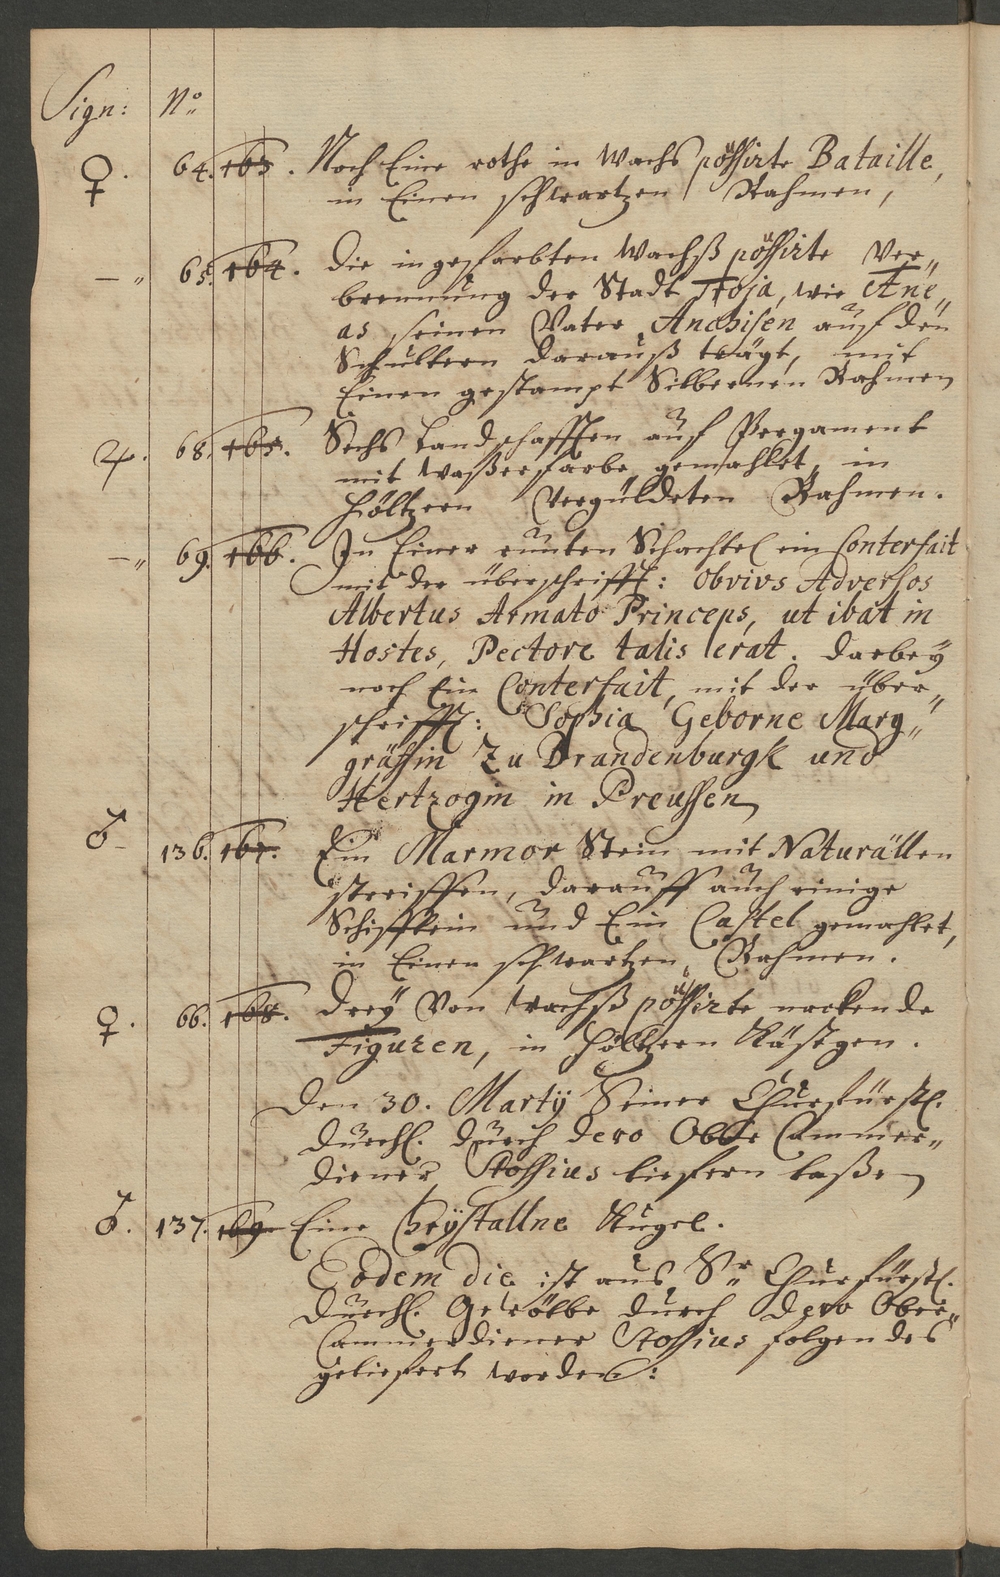 Sign: No
♀. 64. 163. Noch Eine rothe in Wachs poußirte Bataille,
in Einen schwartzen Rahmen,
— " 65. 164. Die in gefarbten Wachß poußirte Ver„
brennung der Stadt Troja, wie Æne„
as seinen Vater Anchisen auf den
Schultern darauß trägt, mit
Einen gestampt Silbernen Rahmen
♃. 68. 165. Sechs Landschafften auf Pergament
mit Waßerfarbe gemahlet, in
höltzern Vergüldeten Rahmen.
— " 69. 166. In Einer runten Schachtel ein Conterfait
mit der überschrifft: Obvios Adversos
Albertus Armato Princeps, ut ibat in
Hostes, Pectore talis erat. Darbeÿ
noch Ein Conterfait, mit der über„
schrifft: Sophia Geborne Marg„
gräffin Zu Brandenburgk und
Hertzogin in Preussen,
♂ 136. 167. Ein Marmor Stein mit Naturällen
streiffen, darauff auch einige
Schifflein und Ein Castel gemahlet,
in Einen schwartzen Rahmen.
♀. 66. 168. Dreÿ Von Wachß poußirte nackende
Figuren, in höltzern Kästgen.
Den 30. Martÿ Seiner Churfürstl.
Durchl. durch dero Ober Cammer„
diener Kossius liefern laßen
♂. 137. 169. Eine Chrÿstallne Kugel.
Eodem die ist aus Sr Churfürstl.
Durchl. Gewölbe durch Dero Ober„
Cammerdiener Kossius folgendes
geliefert worden: